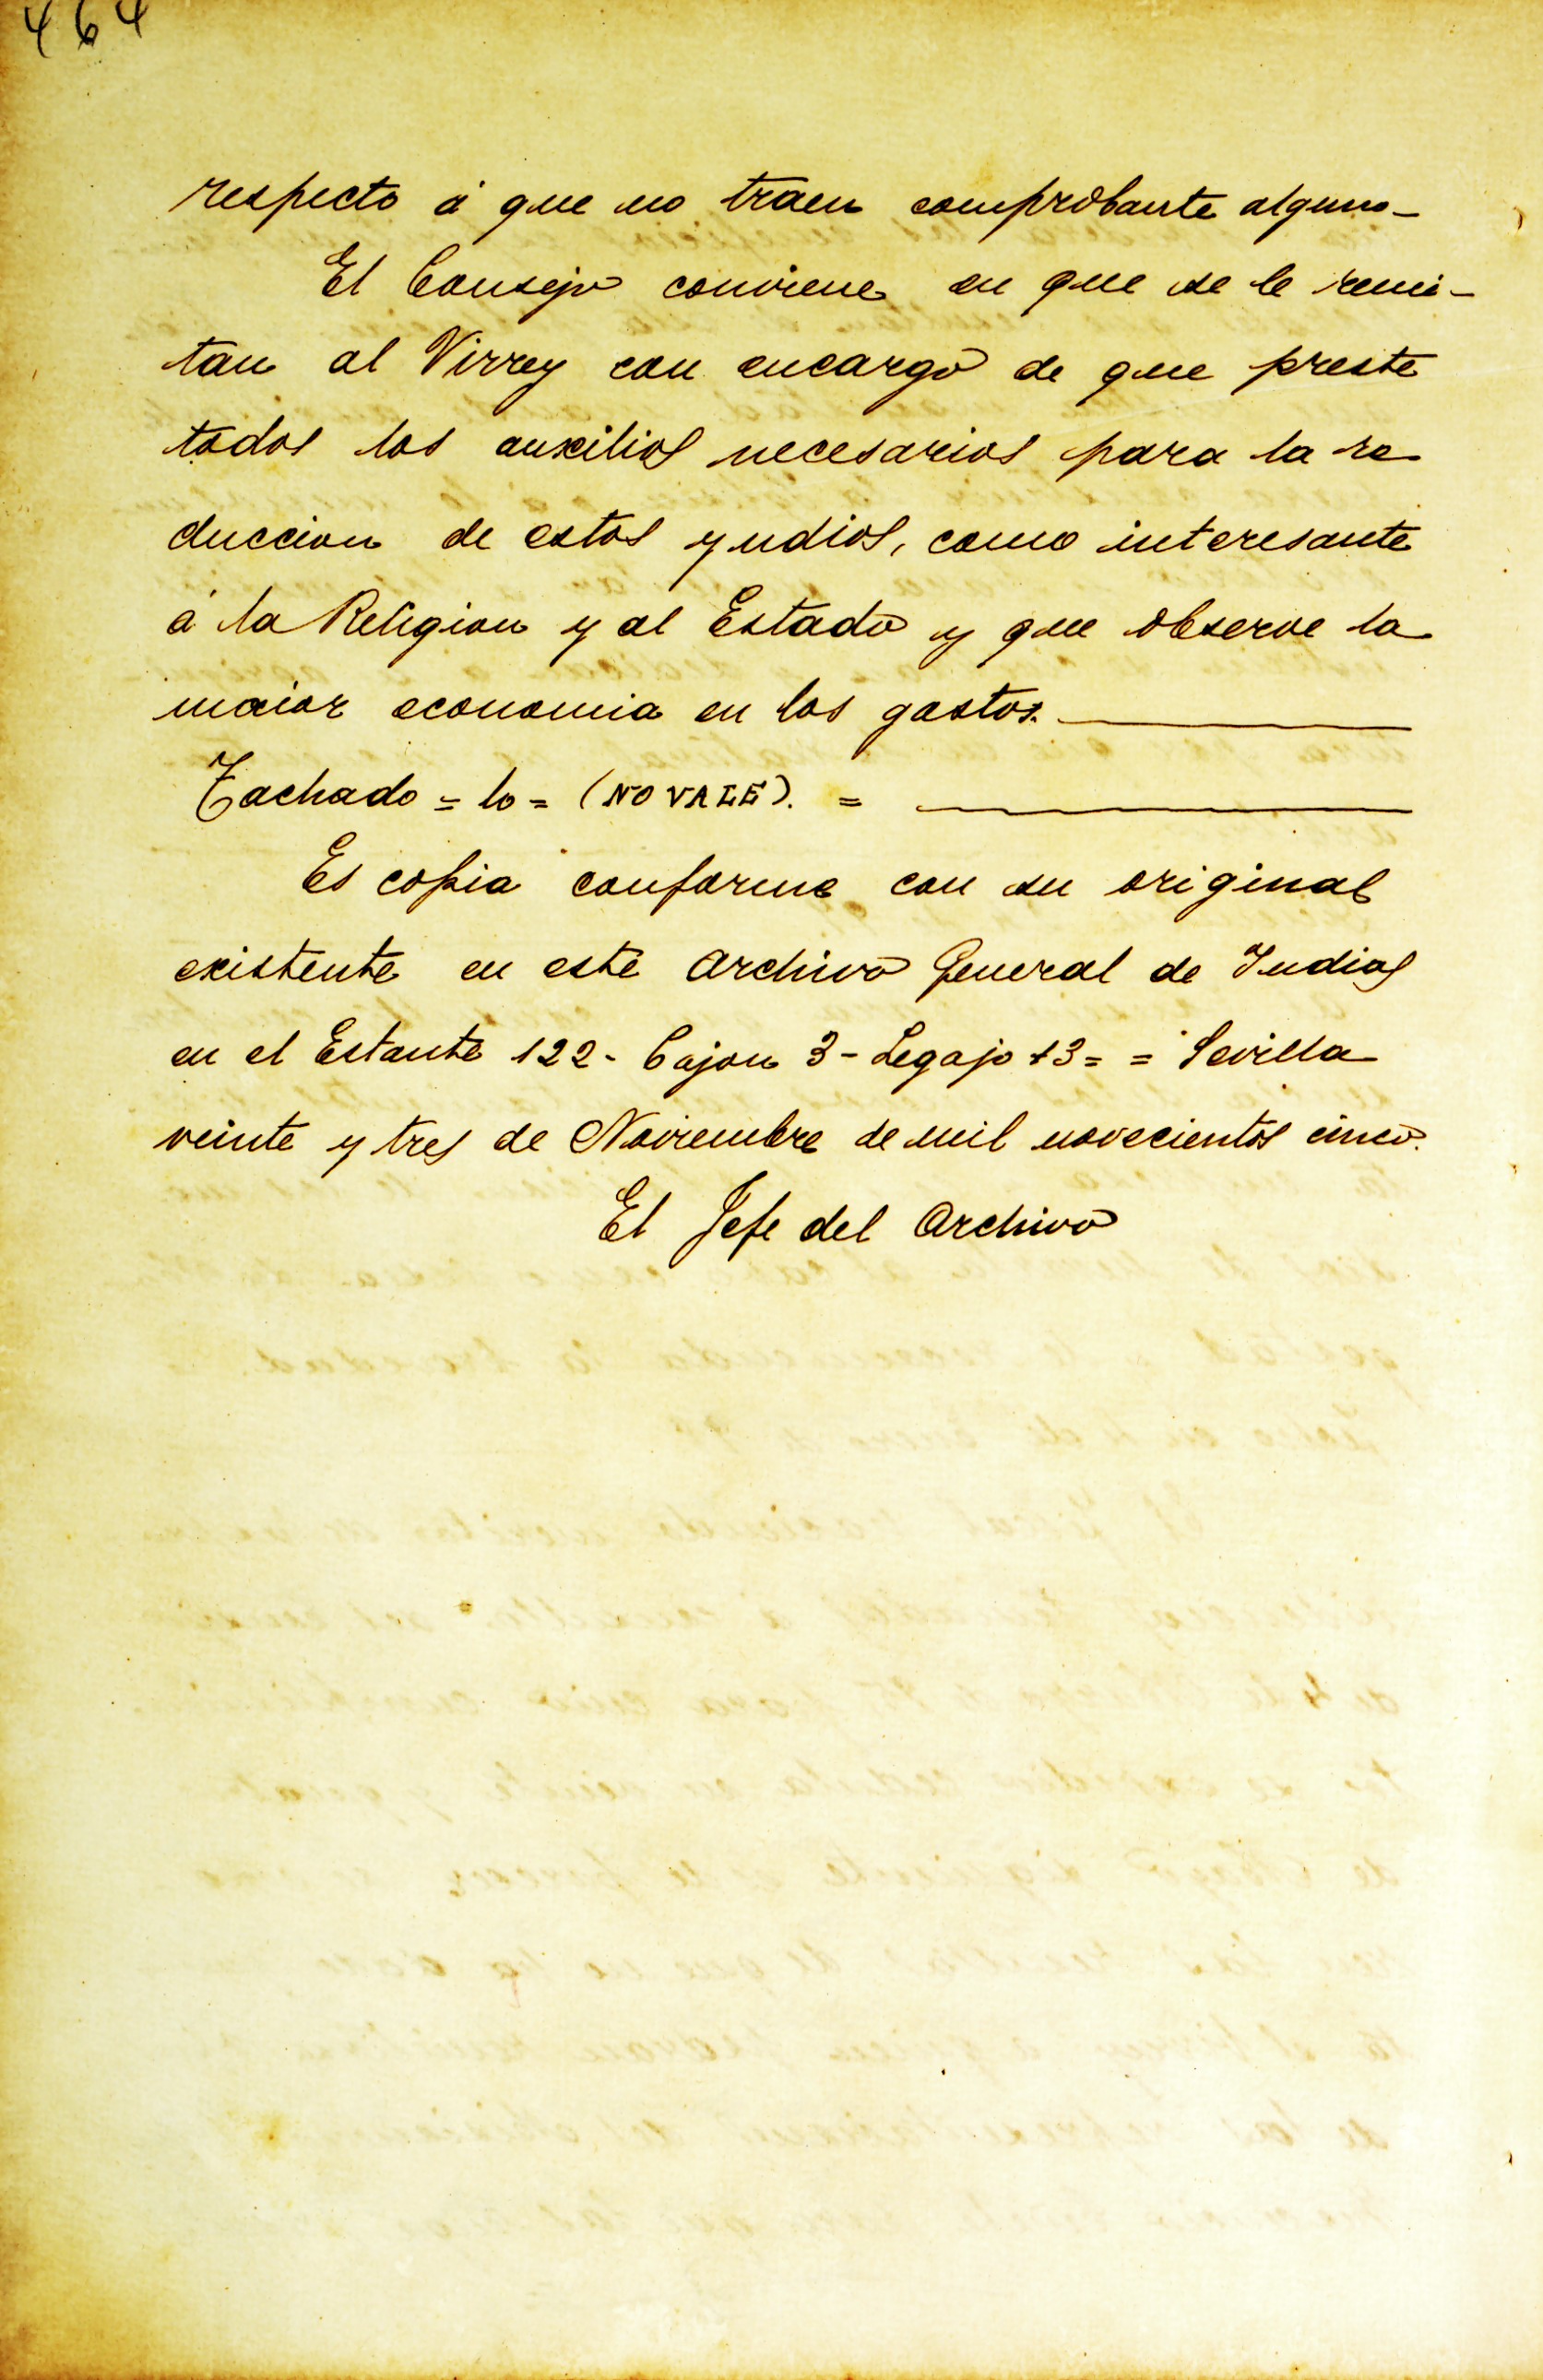 464
respecto á que no traen comprobante alguno—
El Consejo conviene en que se le remi-
tan al Virrey con encargo de que preste
todos los auxilios necesarios para la re
duccion de estos yndios, como interesante
á la Religion y al Estado y que observe la
maior economia en los gastos.
Tachado = lo = (NO VALE). =
Es copia conforme con su original
existente en este Archivo General de Indias
en el Estante 122 - Cajon 3 - Legajo 13 = = Sevilla
veinte y tres de Noviembre de mil novecientos cinco.
El Jefe del Archivo